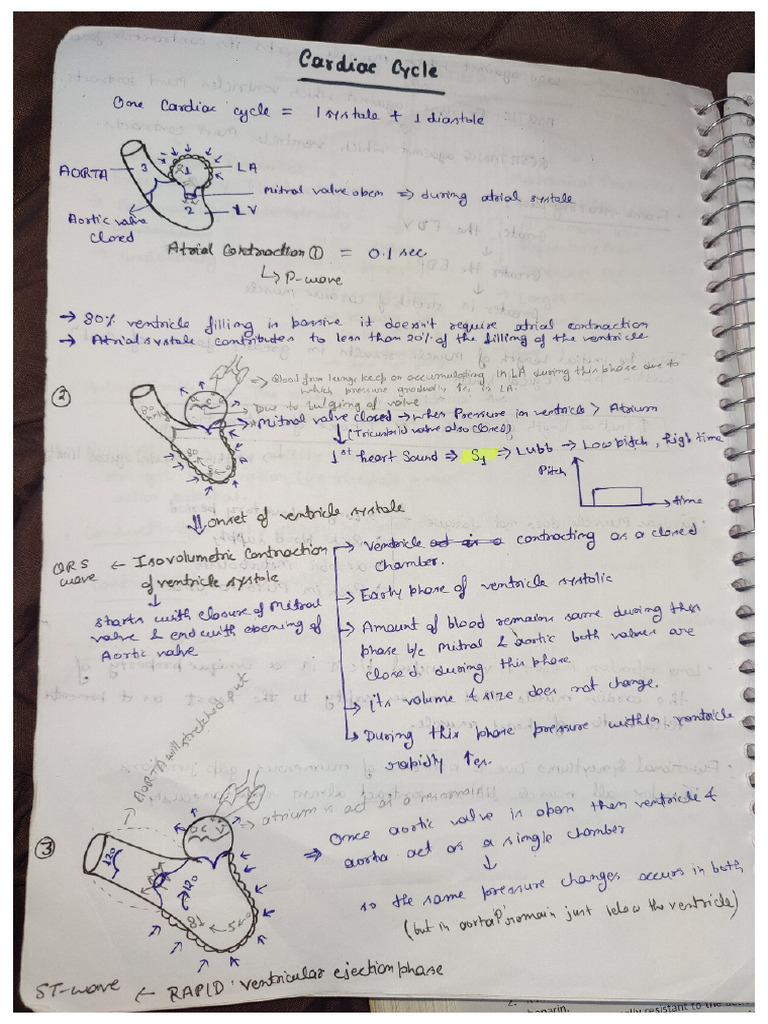 Cardiac Cycle
One Cardiac cycle = 1 systole + 1 diastole
AORTA
3
1
LA
Mitral valve open ⇒ during atrial systole
2
LV
Aortic valve closed
Atrial Contraction ① = 0.1 sec
↳ P-wave
→ 80% ventricle filling is passive it doesn't require atrial contraction
→ Atrial systole contributes to less than 20% of the filling of the ventricle
⇒ Blood from lungs keep on accumulating in LA during this phase due to
which pressure gradually ↑es in LA.
②
⇒ Due to bulging of valve
Mitral valve closed → when Pressure in ventricle > Atrium
↓ (Tricuspid valve also closed)
1st heart Sound ⇒ S1 ⇒ Lubb → Low pitch, high time
Pitch
time
⇓ onset of ventricle systole
QRS wave ← Isovolumetric Contraction of ventricle systole
↓
starts with closure of Mitral
valve & end with opening of
Aortic valve
→ Ventricle act as a contracting as a closed
chamber.
→ Early phase of ventricle systolic
→ Amount of blood remains same during this
phase b/c Mitral & aortic both valves are
closed during this phase.
→ Its volume & size does not change.
→ During this phase pressure within ventricle
rapidly ↑es.
AORTA will stretched out
③
⇒ atrium is act as a reservoir
120
120
80
⇒ Once aortic valve is open then ventricle &
aorta act as a single chamber
↓
so the same pressure changes occurs in both
(but in aorta 'P' remain just below the ventricle)
ST-wave ← RAPID ventricular ejection phase